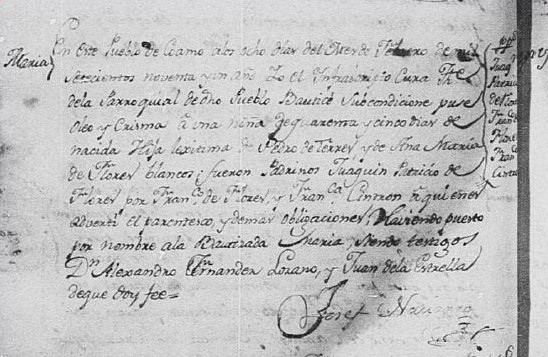 Maria
En este Pueblo de Coamo alos ocho dias del Mes de Febrero de mil
setecientos noventa y un año Yo el Infrascripto Cura The
dela Parroquial de dho Pueblo Bautice Subcondicione puse
Oleo y Crisma à una niña de quarenta y cinco dias de
nacida Hija lexitima de Pedro de Torres y de Ana Maria
de Flores blancos; fueron Padrinos Juaquin Patricio de
Flores por Franco. de Flores, y Franca. Cintron à quienes
adverti el parentezco, y demas obligaciones, Haviendo puesto
por nombre ala Bautizada Maria, siendo testigos
Dn. Alexandro Fernandez Lozano, y Juan dela Estrella
deque doy fee=
Josef Navarro